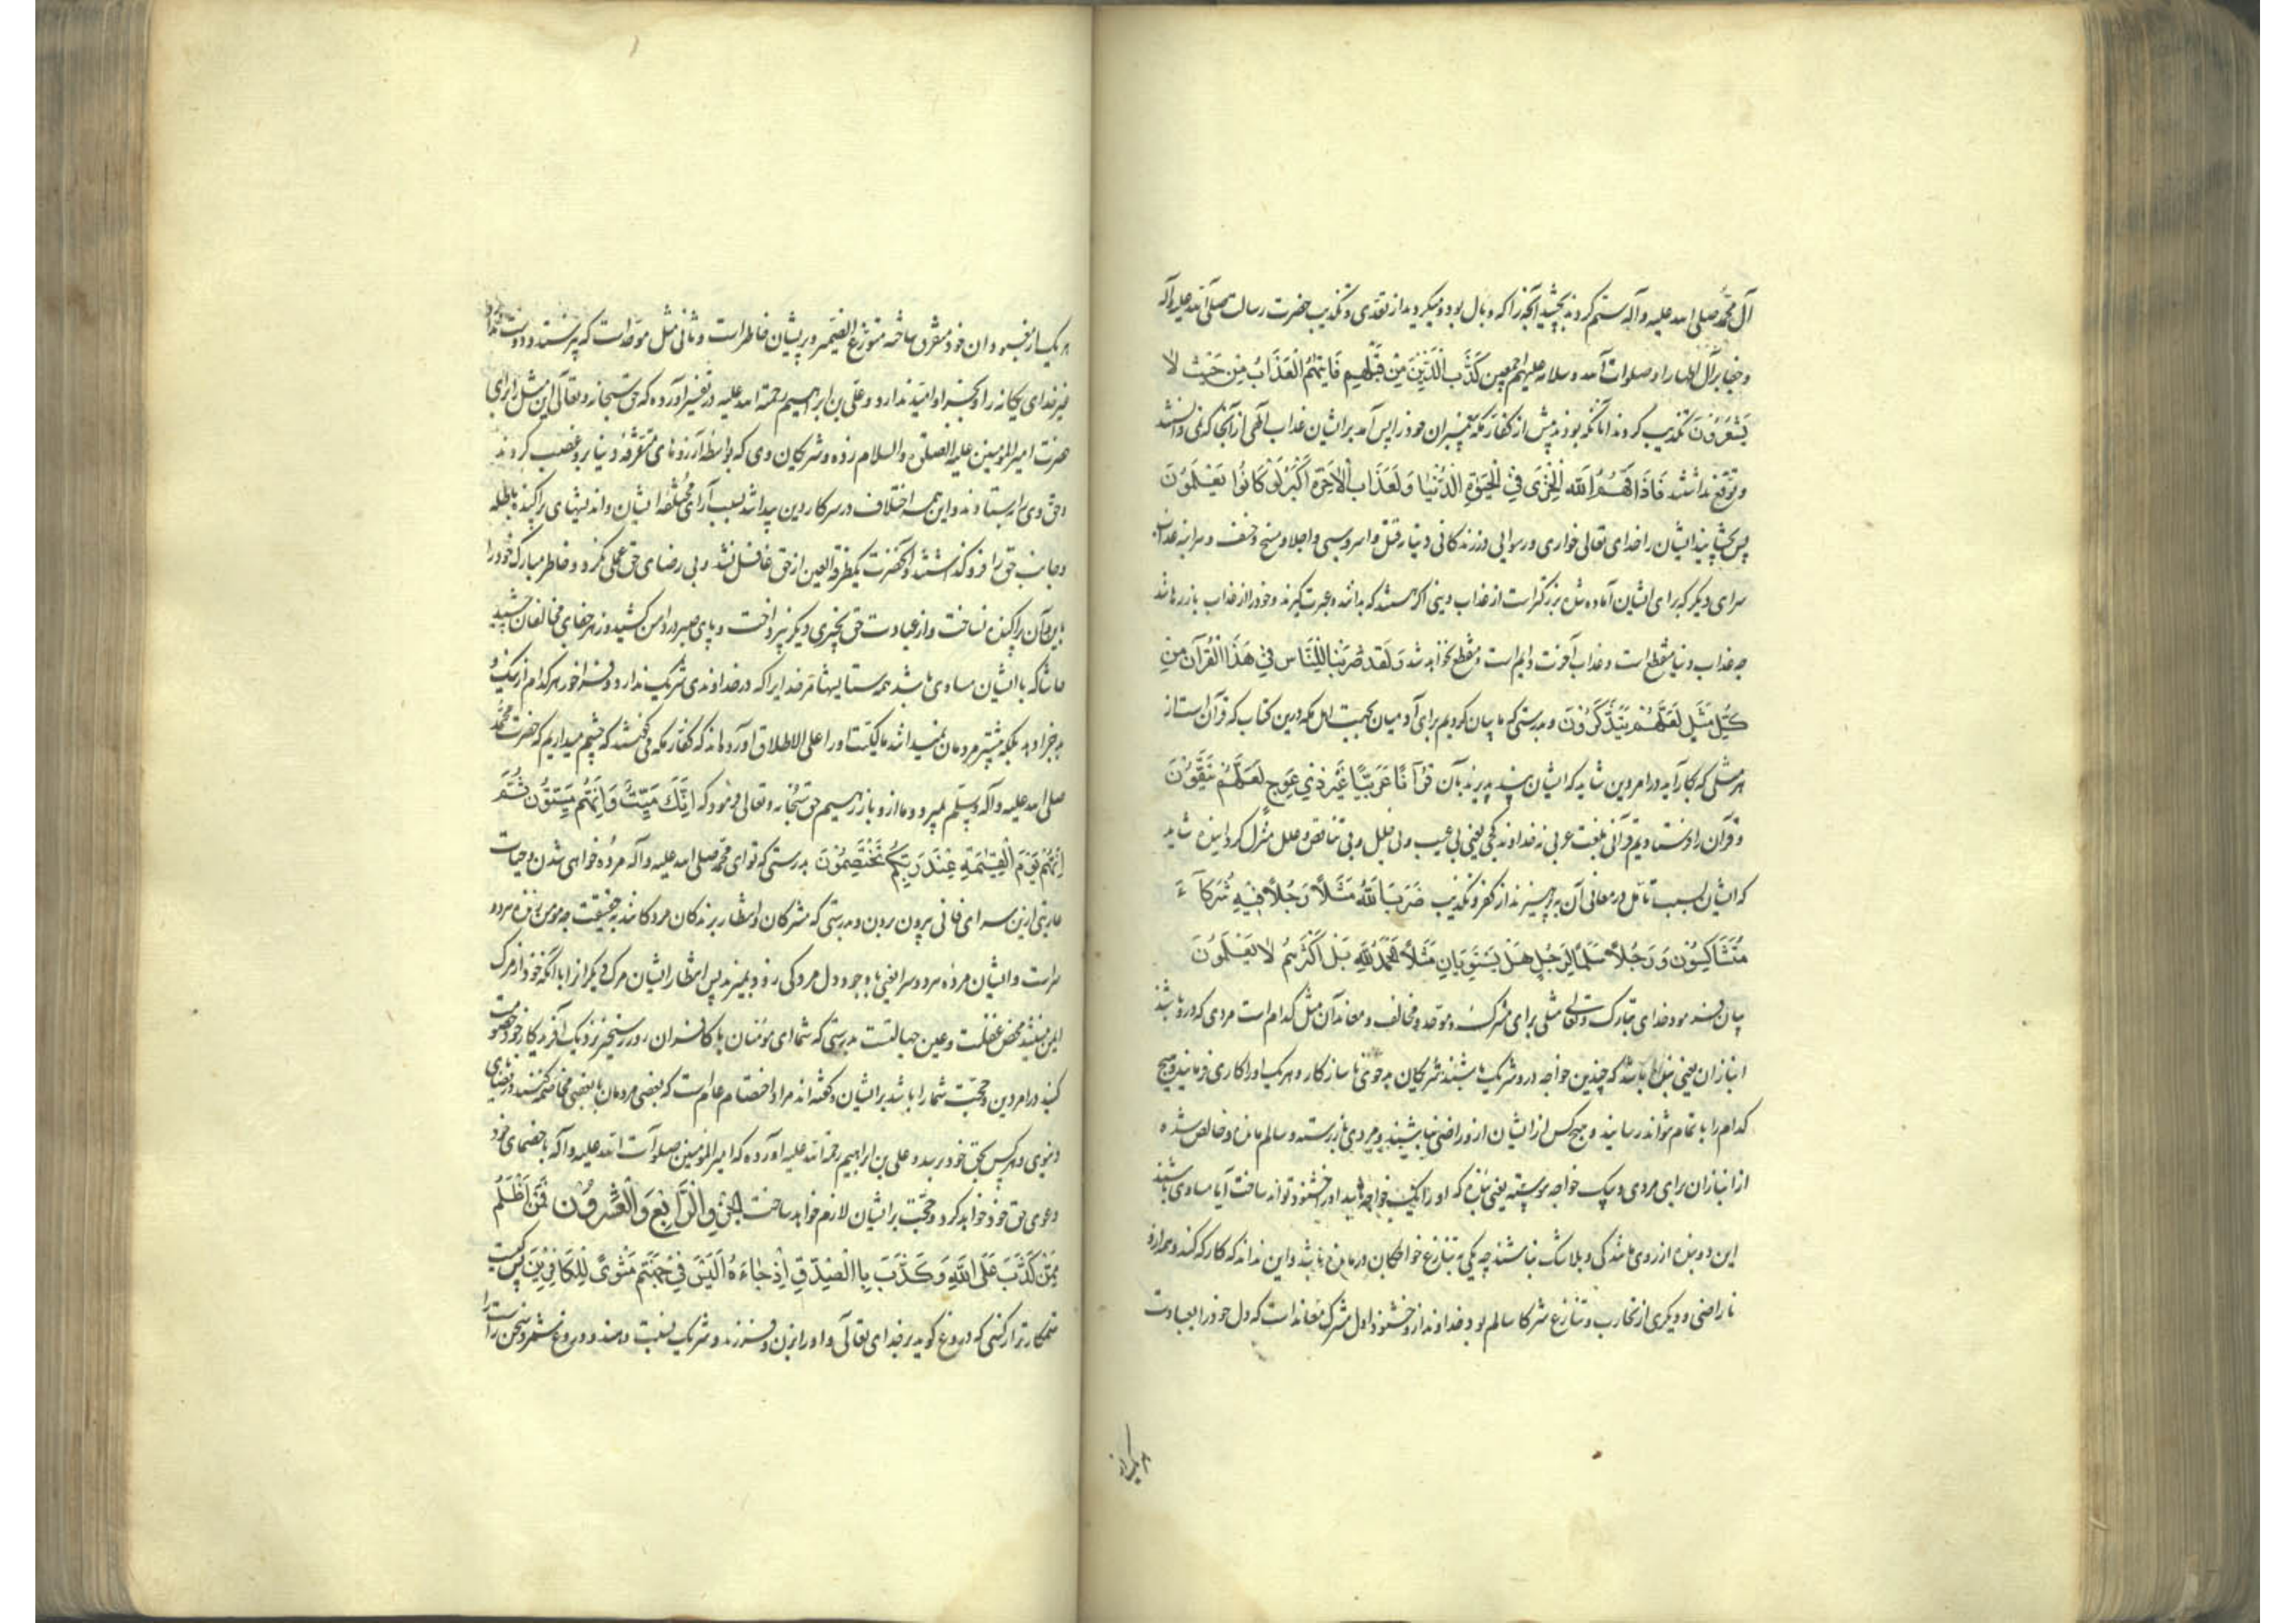 آل محمد صلی الله علیه وآله ستم کردند بچشید آنچه را که وبال بود ومیکردید از تعدی و تکذیب حضرت رسالت صلی الله علیه وآله
و جفا بر آل اطهار او صلوات الله وسلامه علیهم اجمعین كَذَّبَ الَّذِينَ مِنْ قَبْلِهِمْ فَاَتٰهُمُ الْعَذَابُ مِنْ حَيْثُ لَا
يَشْعُرُونَ تکذیب کردند آنانکه بودند پیش از کفار مکه پیغمبران خود را پس آمد بر ایشان عذاب الهی از آنجا که نمی دانستند
و توقع نداشتند فَاَذَاقَهُمُ اللّٰهُ الْخِزْىَ فِي الْحَيٰوةِ الدُّنْيَا وَلَعَذَابُ الْاٰخِرَةِ اَكْبَرُ لَوْ كَانُوا يَعْلَمُونَ
پس بچشانید ایشان را خدای تعالی خواری و رسوایی در زندگانی دنیا و قتل و اسر و سبی و اجلا و مسخ و خسف و هر اینه عذاب
سرای دیگر که برای ایشان آماده شده بزرگتر است از عذاب دینی اگر هستند که بدانند و عبرت گیرند و خود را از عذاب باز رهانند
چه عذاب دنیا منقطع است و عذاب آخرت دایم است و منقطع نخواهد شد وَلَقَدْ ضَرَبْنَا لِلنَّاسِ فِي هٰذَا الْقُرْاٰنِ مِنْ
كُلِّ مَثَلٍ لَعَلَّهُمْ يَتَذَكَّرُونَ و بدرستی که ما بیان کردیم برای آدمیان بجهت اهل مکه درین کتاب که قرآن است از
هر مثلی که بکار آید در امر دین شاید که ایشان پند پذیرند بآن قُرْاٰنًا عَرَبِيًّا غَيْرَ ذِي عِوَجٍ لَعَلَّهُمْ يَتَّقُونَ
و قرآن را فرستادیم قرآنی بلغت عربی نه خداوند کجی یعنی بی عیب و بی خلل و بی تناقض و علل منزل گردانیده شاید
که ایشان بسبب تأمل در معانی آن بپرهیزند از کفر و تکذیب ضَرَبَ اللّٰهُ مَثَلًا رَجُلًا فِيهِ شُرَكَآءُ
مُتَشَاكِسُونَ وَرَجُلًا سَلَمًا لِرَجُلٍ هَلْ يَسْتَوِيَانِ مَثَلًا اَلْحَمْدُ لِلّٰهِ بَلْ اَكْثَرُهُمْ لَا يَعْلَمُونَ
بیان فرمود خدای تبارک وتعالی مثلی برای مشرک و موحد و مخالف و معاند آن مثل کدام است مردی که درو باشند
انبازان یعنی بنده باشد که چندین خواجه درو شریک باشند شریکان بدخوی ناسازکار و هر یک او را کاری فرمایند و هیچ
کدام را باتمام نتواند رسانید و هیچ کس از ایشان ازو راضی نباشند و مردی باز رسته و سالم مانده و خالص شده
از انبازان برای مردی و بیک خواجه پیوسته یعنی بنده که او را یک خواجه باشد او را خشنود تواند ساخت آیا مساوی باشند
این دو بنده از روی مانندگی و بلا شک نباشند چه یکی به تنازع خواجکان درمانده باشد و این نداند که کار که کند و همه ازو
ناراضی و دیگری از تحارب و تنازع شرکا سالم بود و خداوند ازو خشنود اول مشرک معاند است که دل خود را بعبادت
هر یک از
هر یک از معبودان خود متفرق ساخته متوزع الضمیر و پریشان خاطر است و ثانی مثل موحد است که پرستد و دوست ندارد
غیر خدای یکانه را و بجز او امید ندارد و علی بن ابراهیم رحمة الله علیه در تفسیر آورده که حق سبحانه و تعالی این مثل را برای
حضرت امیر المؤمنین علیه الصلوة والسلام زده و شریکان وی که بواسطه آرزوهای متفرقه دنیا برو غصب کردند
و حق وی را بستادند و این همه اختلاف در سر کار دین پیدا شد بسبب آرای مختلفه ایشان و اندیشهای پراکنده باطله
و جانب حق را فروگذاشتند و آنحضرت یکطرفة العین از حق غافل نشد و بی رضای حق عملی نکرد و خاطر مبارک خود را
باین و آن پراکنده نساخت و از عبادت حق بچیزی دیگر نپرداخت و پای صبر در دامن کشید و زهر جفای مخالفان چشید
حاشا که با ایشان مساوی باشد همه ستایشها مر خدایرا که در خداوندی شریک ندارد و فراخور هر کدام از نیک و
بد جزا دهد بلکه بیشتر مردمان نمیدانند مالکیت او را علی الاطلاق آورده اند که کفار مکه می گفتند که چشم میداریم که حضرت محمد
صلی الله علیه وآله وسلم بمیرد و ما ازو باز رهیم حق سبحانه و تعالی فرمود که اِنَّكَ مَيِّتٌ وَاِنَّهُمْ مَيِّتُونَ ثُمَّ
اِنَّكُمْ يَوْمَ الْقِيٰمَةِ عِنْدَ رَبِّكُمْ تَخْتَصِمُونَ بدرستی که تو ای محمد صلی الله علیه وآله مرده خواهی شدن و حیات
عاریتی ازین سرای فانی بیرون بردن و بدرستی که مشرکان و انتظار برندکان مردکانند بحقیقت چه مومن زنده هر دو
سراست و ایشان مرده هر دو سرا یعنی با وجود دل مردکی زود بمیرند پس انتظار ایشان مرک دیگر از ابا آنکه خود از مرک
ایمن نیستند محض غفلت و عین جهالتست بدرستی که شما ای مومنان با کافران روز رستخیز نزدیک آفریدکار خود خصومت
کنید در امر دین و حجت شما را باشد بر ایشان و گفته اند مراد اختصام عام است که بعضی مردمان با بعضی مخاصمه کنند در قضایای
دنیوی و هر کس بحق خود برسد و علی بن ابراهیم رحمة الله علیه آورده که امیر المؤمنین صلوات الله علیه وآله با خصمای خود
دعوی حق خود خواهد کرد و حجت بر ایشان لازم خواهد ساخت الجزو الرابع والعشرون فَمَنْ اَظْلَمُ
مِمَّنْ كَذَبَ عَلَى اللّٰهِ وَكَذَّبَ بِالصِّدْقِ اِذْ جَاءَهُ اَلَيْسَ فِي جَهَنَّمَ مَثْوًى لِلْكَافِرِينَ پس کیست
ستمکارتر از کسی که دروغ گوید بر خدای تعالی و او را بزن و فرزند و شریک نسبت دهند و دروغ شمرد سخن راست را